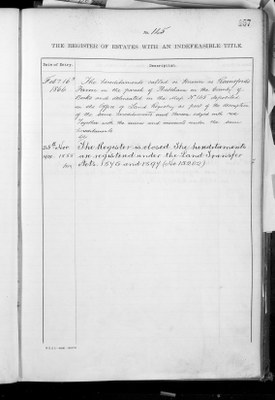 No. 165
THE REGISTER OF ESTATES WITH AN INDEFEASIBLE TITLE
Date of Entry.
Description.
Feby. 16th The hereditaments called or known as
1866 Farm in the parish of in the County of
Bucks and delineated on the Map No. 165 deposited
in the Office of Land Registry as part of the description
of the same hereditaments and thereon edged with red
Together with the mines and minerals under the same
hereditaments
The Register is closed. The hereditaments
are registered under the Land Transfer
Acts. 1875 and 1897